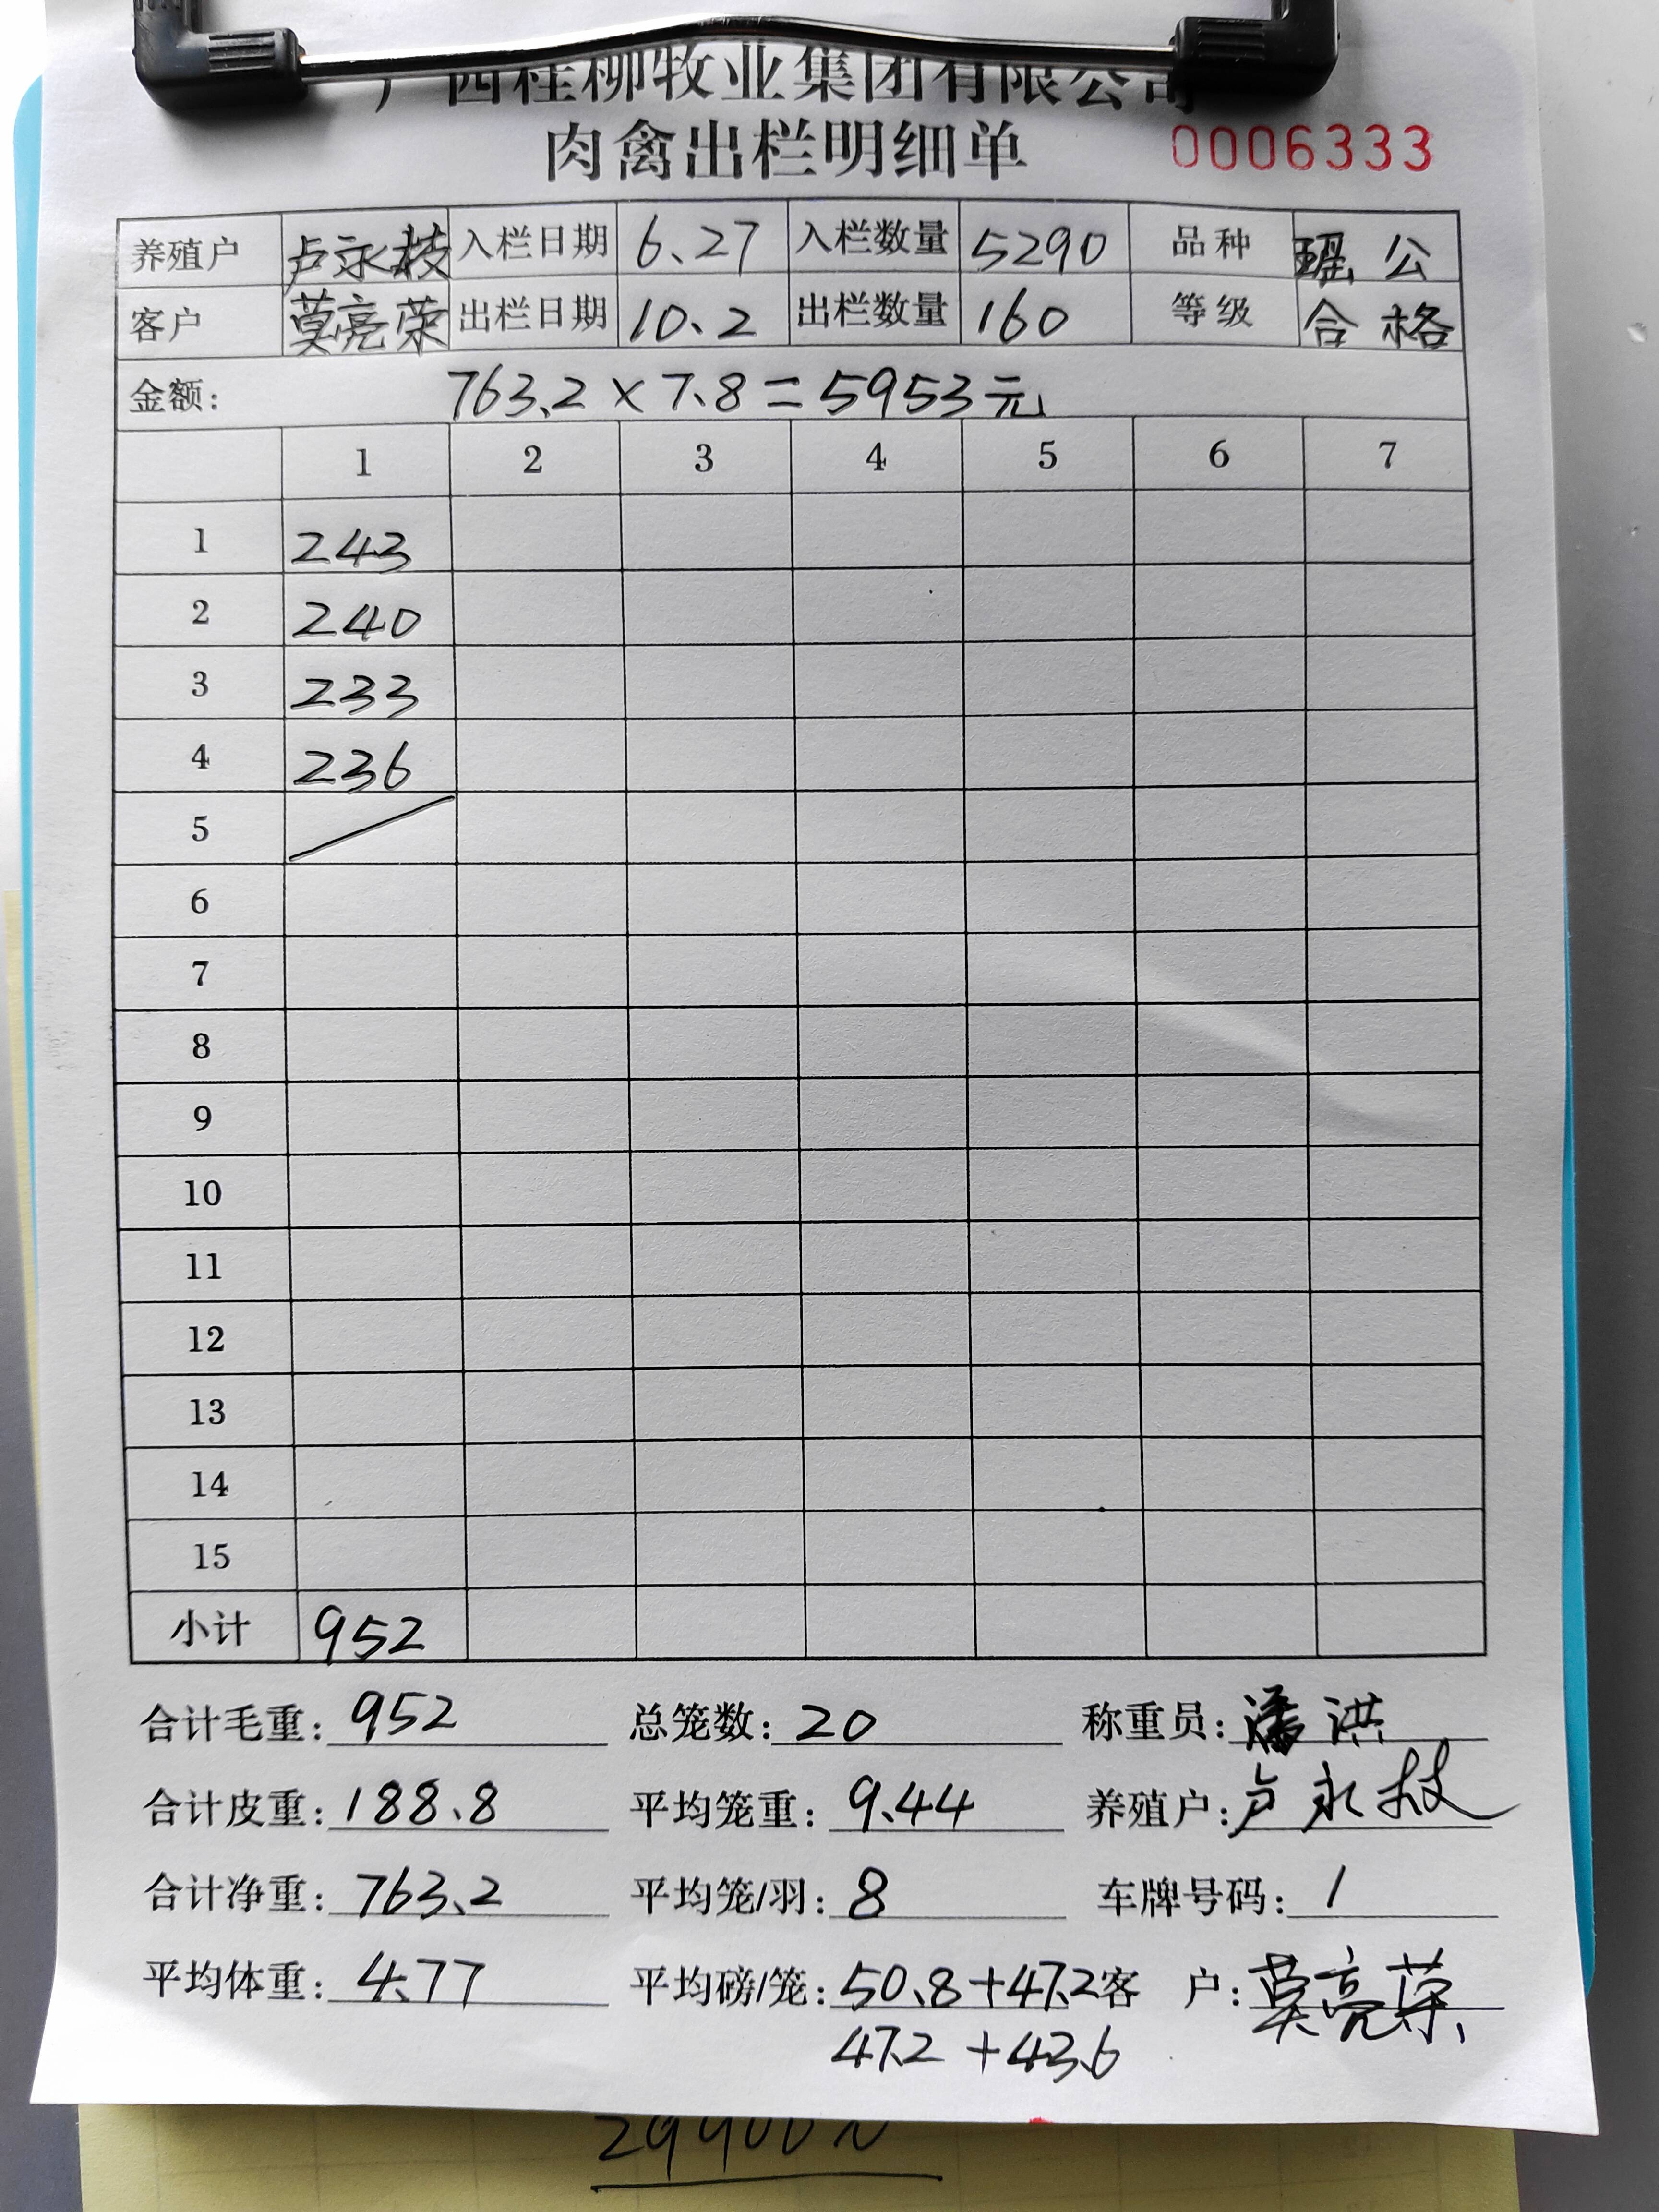 广西桂柳牧业集团有限公司
肉禽出栏明细单 0006333
养殖户 卢永枝 入栏日期 6.27 入栏数量 5290 品种 瑶公
客户 莫亮荣 出栏日期 10.2 出栏数量 160 等级 合格
金额: 763.2×7.8=5953元
1 2 3 4 5 6 7
1 243
2 240
3 233
4 236
5
6
7
8
9
10
11
12
13
14
15
小计 952
合计毛重: 952 总笼数: 20 称重员: 潘洪
合计皮重: 188.8 平均笼重: 9.44 养殖户: 卢永枝
合计净重: 763.2 平均笼/羽: 8 车牌号码: /
平均体重: 4.77 平均磅/笼: 50.8+47.2 客户: 莫亮荣
47.2+43.6